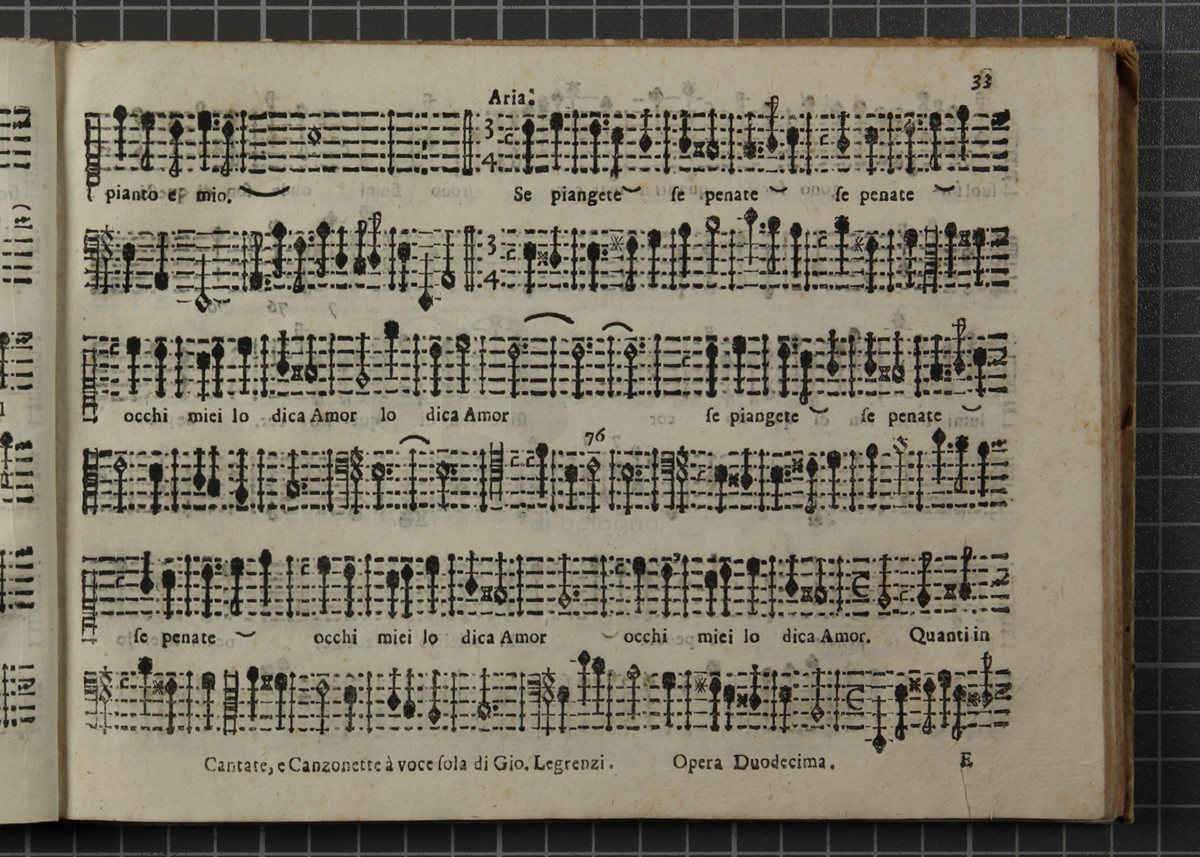 33
Aria:
3
4
pianto e mio. Se piangete ſe penate ſe penate
3
4
occhi miei lo dica Amor lo dica Amor ſe piangete ſe penate
76
ſe penate occhi miei lo dica Amor occhi miei lo dica Amor. Quanti in
Cantate, e Canzonette à voce ſola di Gio. Legrenzi. Opera Duodecima. E